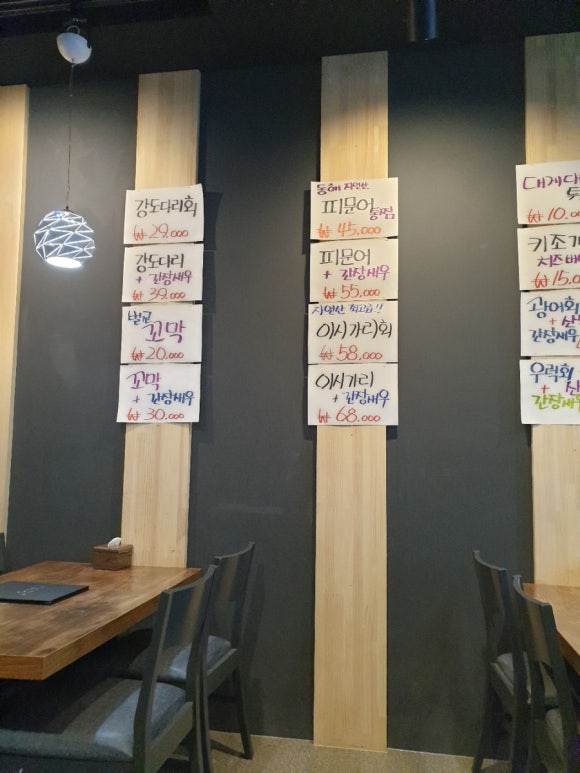 강도다리회
₩ 29.000
강도다리
+ 간장새우
₩ 39.000
벌교
꼬막
₩ 20.000
꼬막
+ 간장새우
₩ 30.000
동해 자연산
피문어
통찜
₩ 45.000
피문어
+ 간장새우
₩ 55.000
자연산 최고급!!
이시가리회
₩ 58.000
이시가리
+ 간장새우
₩ 68.000
대게다
₩ 10.00
키조개
치즈버
₩ 15.0
광어회
+ 산
간장새우
우럭회
+ 산
간장새우